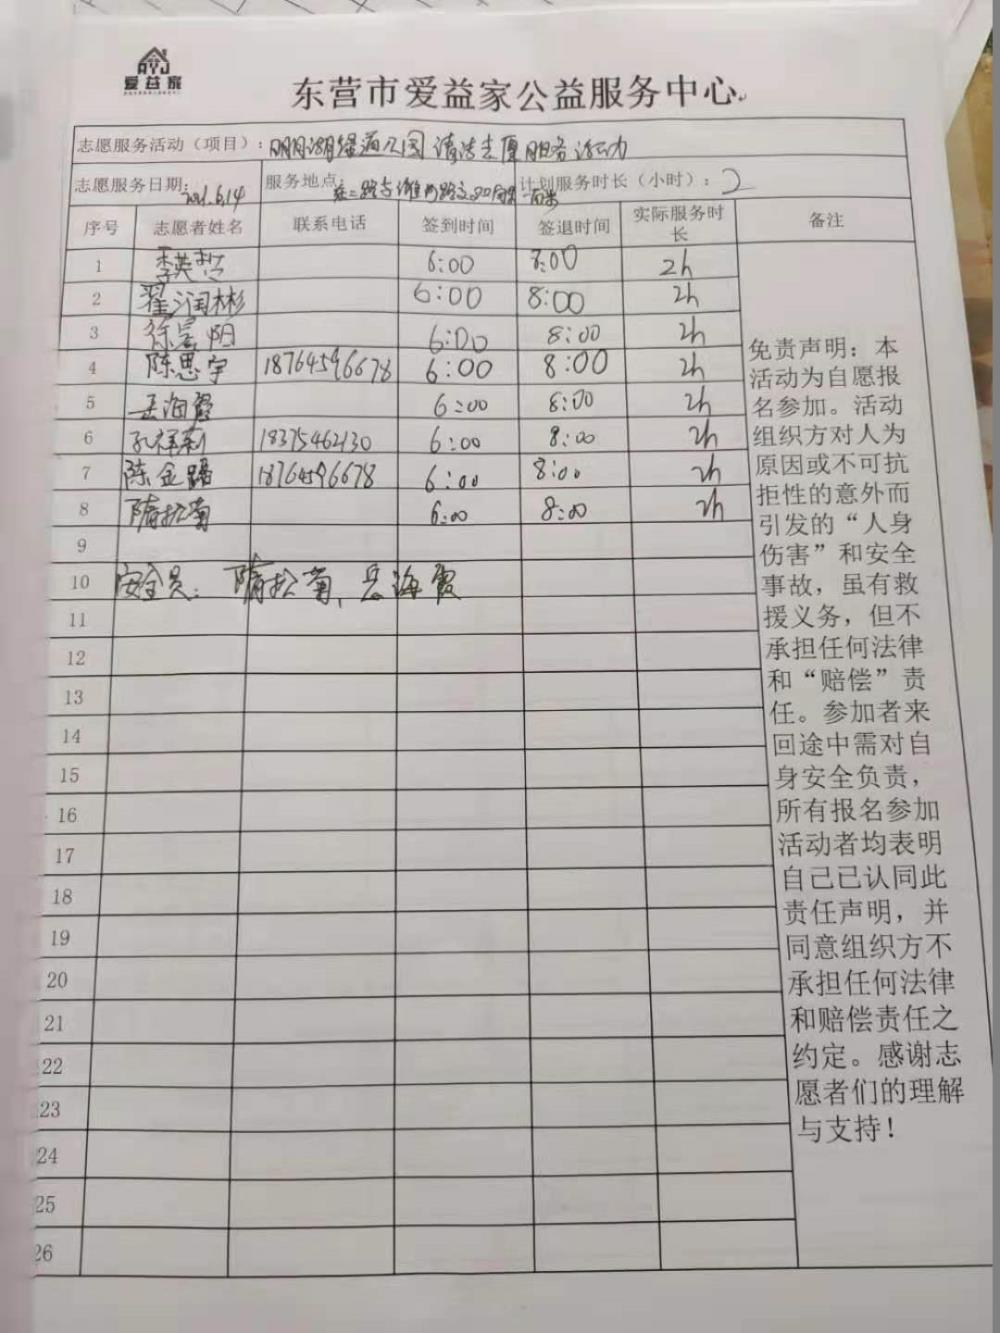 AYJ
爱益家
东营市爱益家公益服务中心
志愿服务活动（项目）：明月湖绿道公园清洁志愿服务活动
志愿服务日期：2021.6.14 服务地点： 计划服务时长（小时）：2
序号 志愿者姓名 联系电话 签到时间 签退时间 实际服务时长 备注
1 李英 6:00 8:00 2h
2 翟润彬 6:00 8:00 2h
3 徐 阳 6:00 8:00 2h
4 陈思宇 18764596678 6:00 8:00 2h
5 岳海霞 6:00 8:00 2h
6 孔祥利 18375462130 6:00 8:00 2h
7 陈金路 18764596678 6:00 8:00 2h
8 隋松菊 6:00 8:00 2h
9
10 安全员：隋松菊、岳海霞
11
12
13
14
15
16
17
18
19
20
21
22
23
24
25
26
免责声明：本
活动为自愿报
名参加。活动
组织方对人为
原因或不可抗
拒性的意外而
引发的“人身
伤害”和安全
事故，虽有救
援义务，但不
承担任何法律
和“赔偿”责
任。参加者来
回途中需对自
身安全负责，
所有报名参加
活动者均表明
自己已认同此
责任声明，并
同意组织方不
承担任何法律
和赔偿责任之
约定。感谢志
愿者们的理解
与支持！